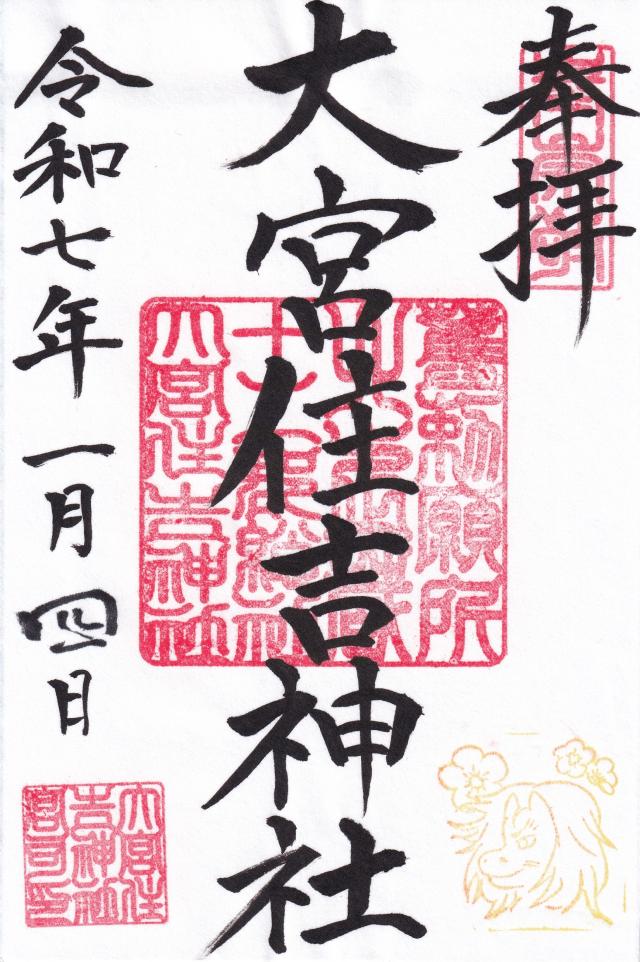 奉拝
大宮住吉神社
令和七年一月四日
勅願所
大宮住吉神社
大宮住
吉神社
宮司印